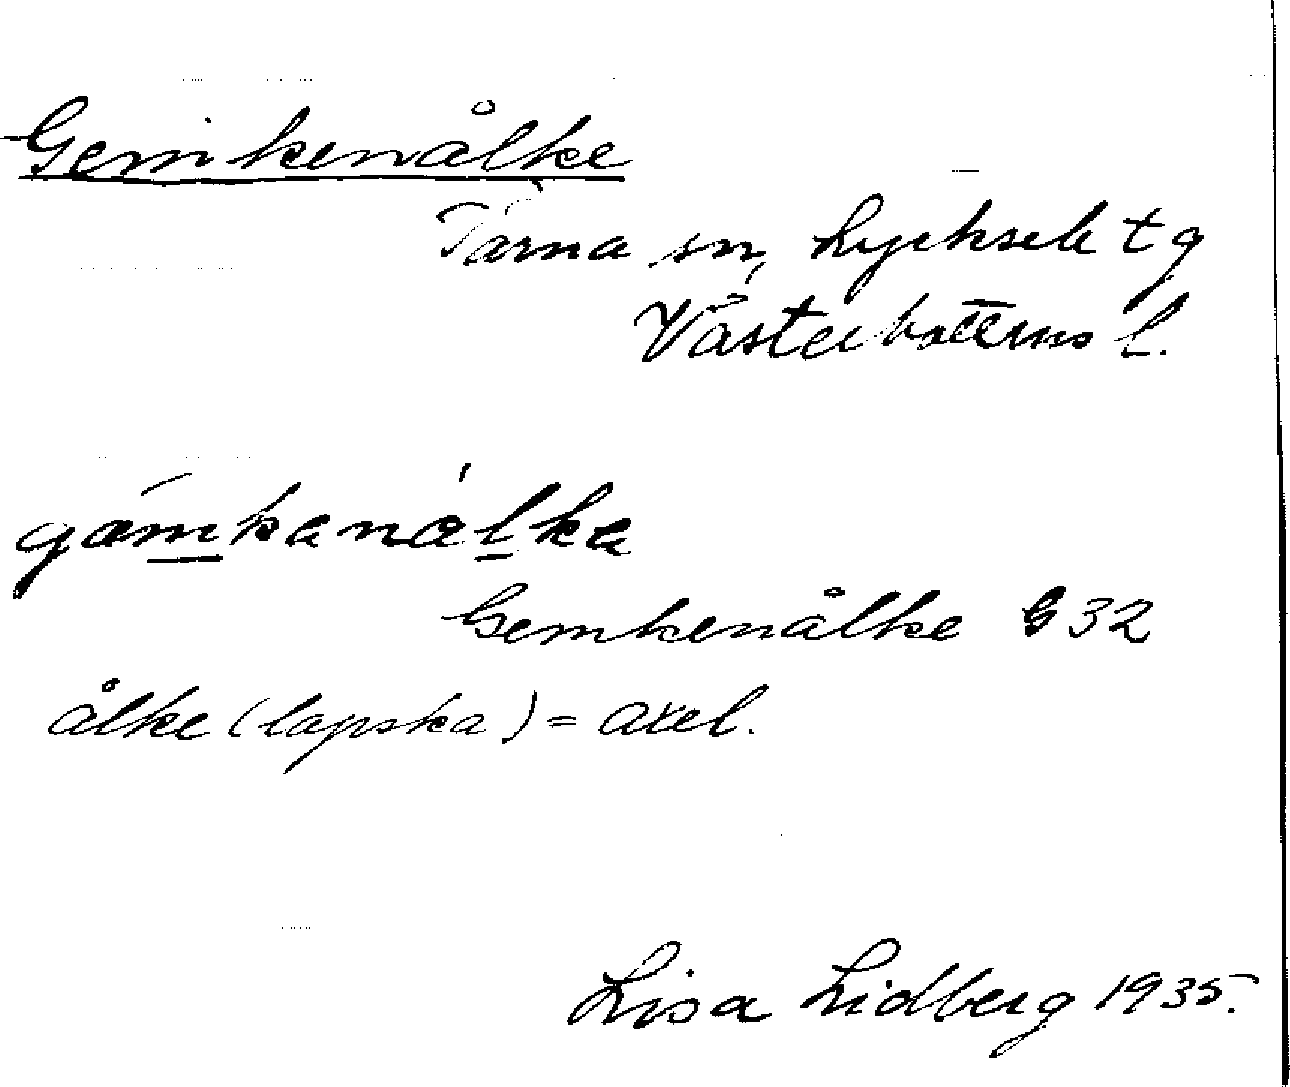 Gemkenålke
Tärna sn, Lycksele tg
Västerbottens l.
gämkanålka
Gemkenålke G 32
ålke (lapska) = axel.
Lisa Lidberg 1935.